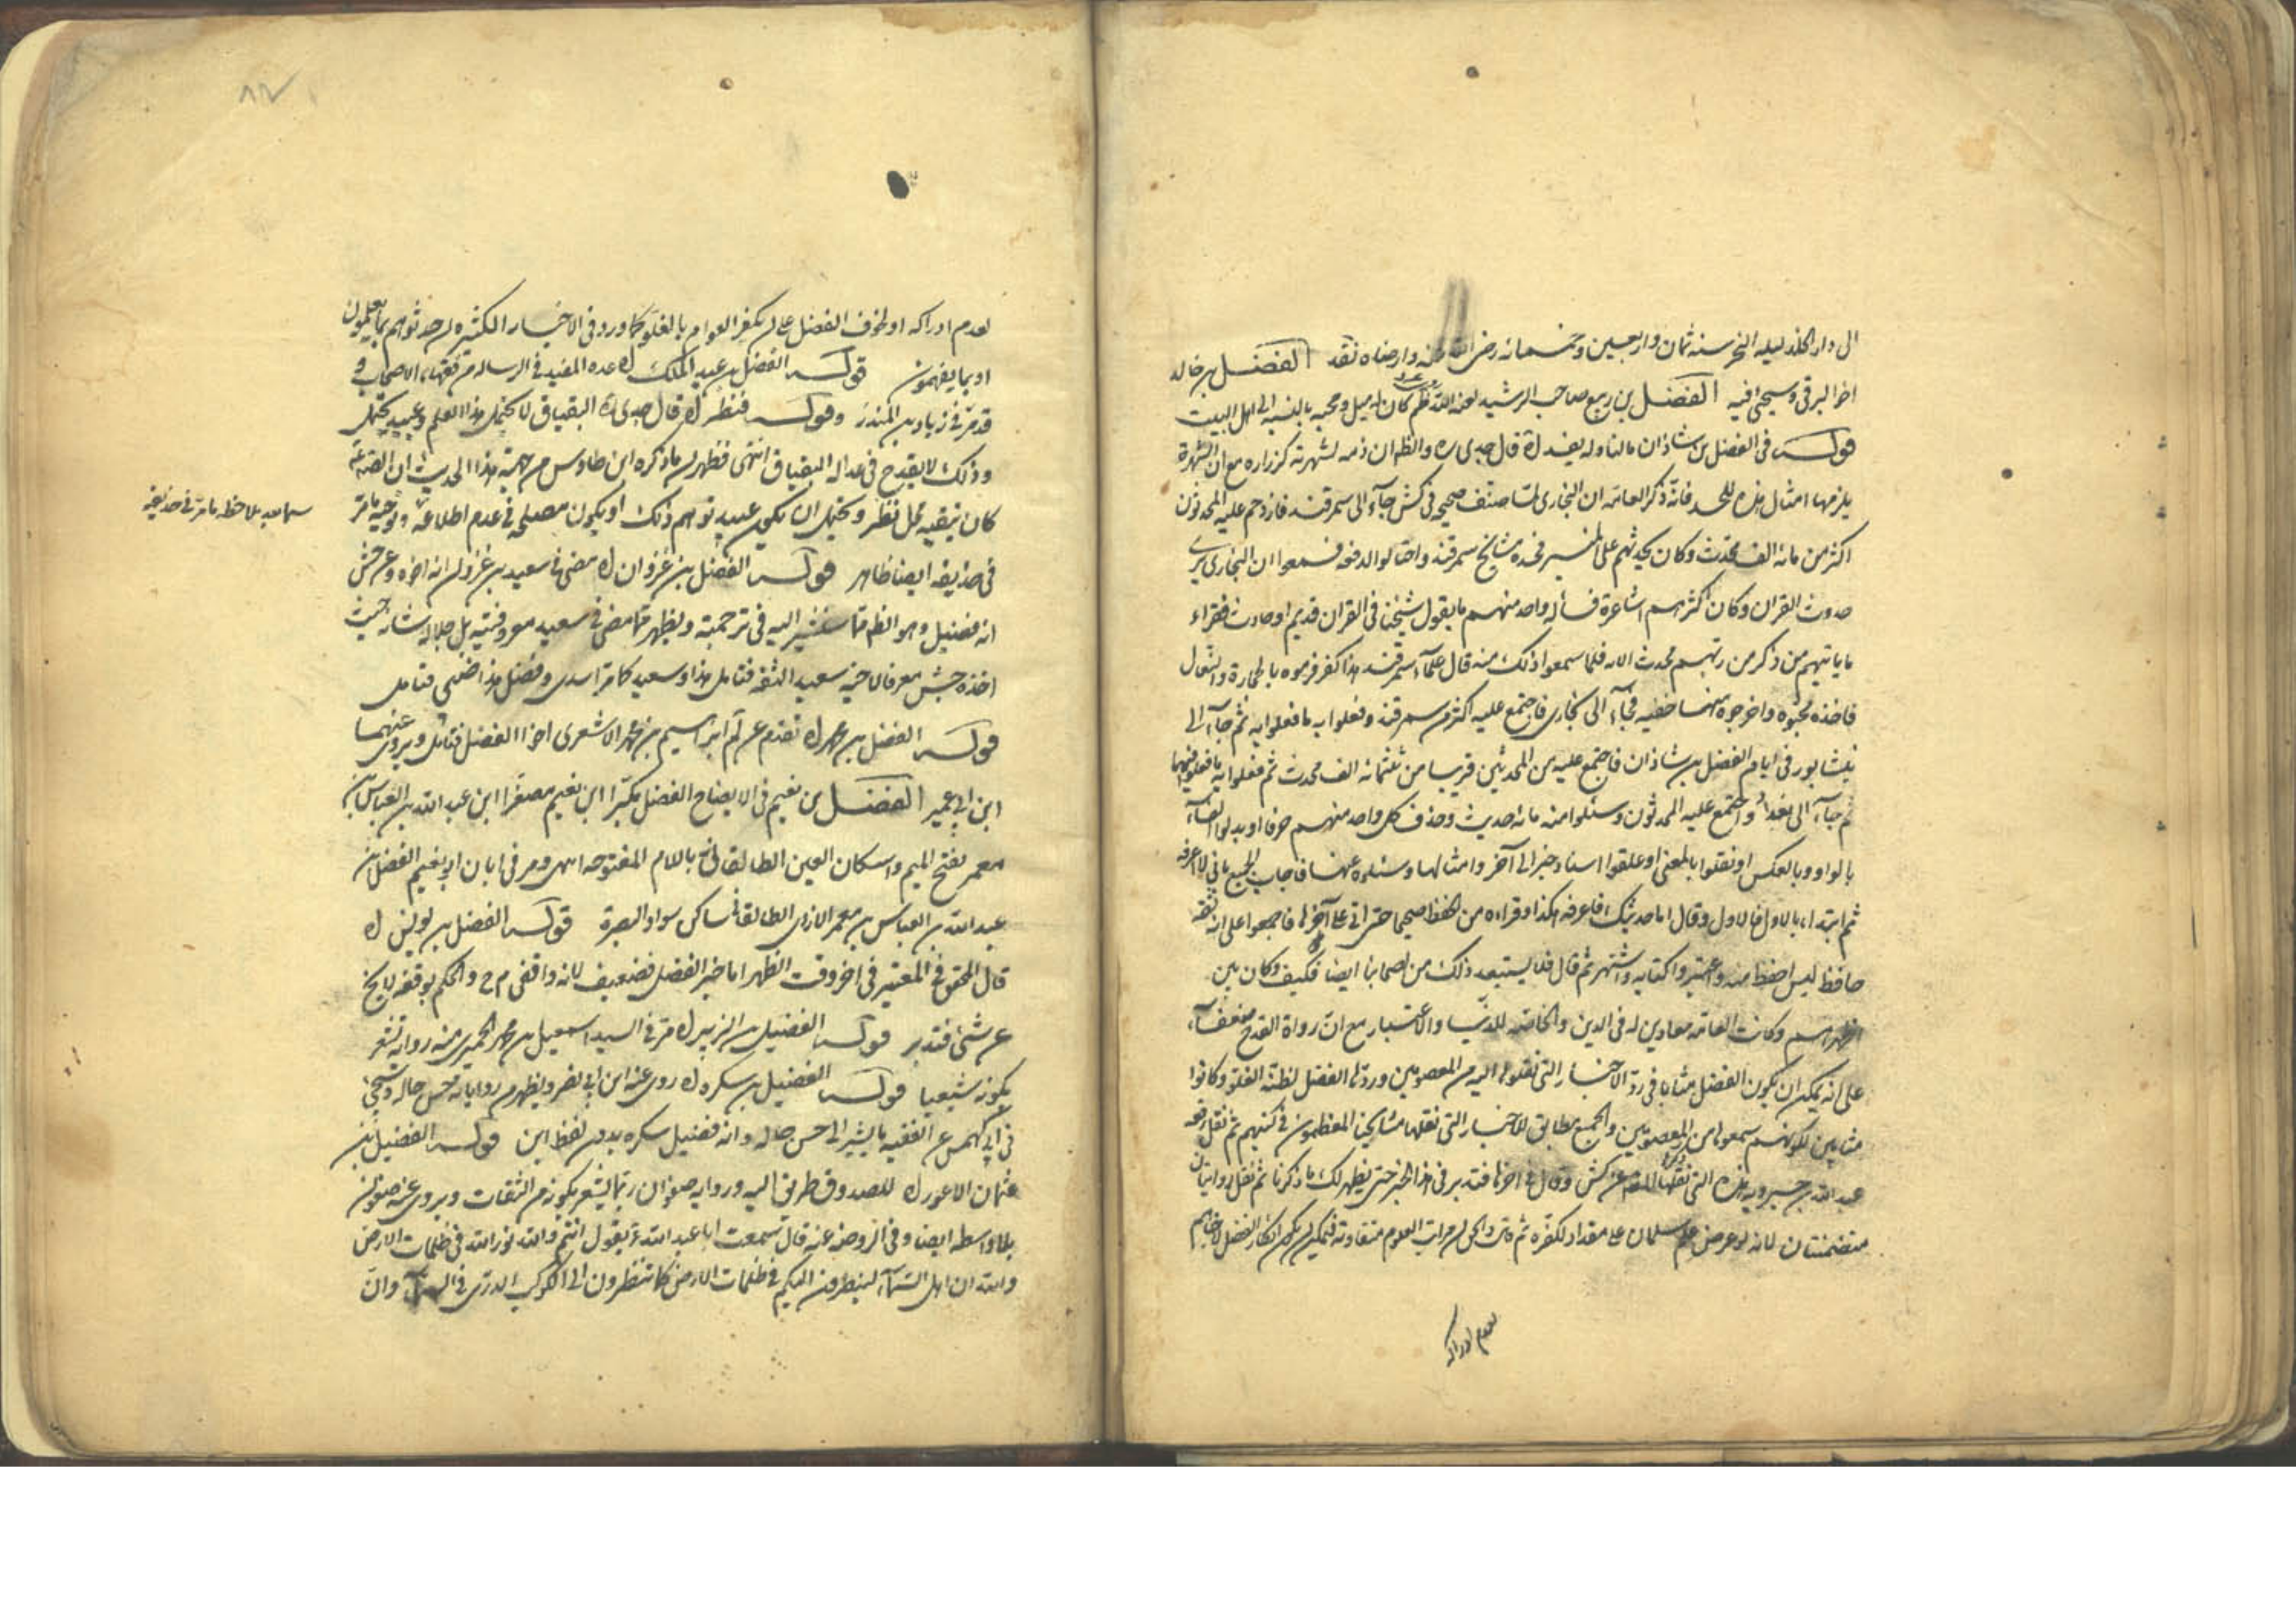 الى دار الخلد ليله النحر سنه ثمان واربعين وخمسمائه رضى الله عنه وارضاه نقد الفضل بن خالد
اخو البرقى وسيجئ فيه الفضل بن ربيع صاحب الرشيد لعنه الله كان له ميل ومحبه بالنسبه الى اهل البيت
قوله فى الفضل بن شاذان مالنا وله يفسد اه قال جدى ره والظ ان ذمه لشهرته كزراره مع ان الشهرة
يلزمها امثال هذه للحسد فانه ذكر العامه ان البخارى لما صنف صحيحه فى كش جاء الى سمرقند فازدحم عليه المحدثون
اكثر من مائه الف محدث وكان يحدثهم على المنبر فحسده مشايخ سمرقند واحتالوا لدفعه فسمعوا ان البخارى يرى
حدوث القران وكان اكثرهم اشاعرة فسأله واحد منهم ما يقول شيخنا فى القران قديم او حادث فقراء
ما ياتيهم من ذكر من ربهم محدث الايه فلما سمعوا ذلك منه قال علماء سمرقند هذا كفر فرموه بالحجارة والنعال
فاخذه محبوه واخرجوه منها خفيه فجاء الى بخارى فاجتمع عليه اكثر من سمرقند وفعلوا به ما فعلوا به ثم جاء الى
نيشابور فى ايام الفضل بن شاذان فاجتمع عليه من المحدثين قريبا من ثلثمائه الف محدث ثم فعلوا به ما فعلوا فيهما
ثم جاء الى بغداد واجتمع عليه المحدثون وسئلوا منه مائه حديث وحذف كل واحد منهم حرفا او بدلوا الفاء
بالواو وبالعكس او نقلوا بالمعنى او علقوا اسناد خبر الى آخر وامثالها وسئلوه عنها فاجاب الجميع بانى لا اعرفه
ثم ابتداء بالاول فالاول وقال اما حديثك فاعرفه هكذا وقراءه من الحفظ صحيحا حتى اتى على آخرها فاجمعوا على انه ثقه
حافظ ليس احفظ منه واعتبروا كتابه واشتهر ثم قال فلا يستبعد ذلك من اصحابنا ايضا فكيف وكان بين
اظهرهم وكانت العامه معادين له فى الدين والخاصه للدنيا والاعتبار مع ان رواة القدح ضعفاء
على انه يمكن ان يكون الفضل مثابا فى رد الاخبار التى نقلوها اليه من المعصومين وردها الفضل لظنه الغلو وكانوا
مثابين لكونهم سمعوها من المعصومين والجميع مطابق للاخبار التى نقلها مشايخنا المعظمون فى كتبهم ثم نقل رقعه
عبد الله بن حمدويه هذه التى نقلها المصنف عن كش وقال فى اخرها فتدبر فى هذا الخبر حتى يظهر لك ما ذكرنا ثم نقل روايتان
متضمنتان لانه لو عرض علم سلمان على مقداد لكفره ثم قال والحق ان مراتب العلوم متفاوته فيمكن ان يكون انكار الفضل لاخبارهم
لعدم ادراكه
لعدم ادراكه او لخوف الفضل على ان يكفر العوام بالغلو كما ورد فى الاخبار الكثيره ان حدثوهم بما يعلمون
او بما يفهمون قوله الفضل بن عبد الملك اه عده المفيد فى الرساله من فقهاء الاصحاب و
قد مر فى زياد بن المنذر وقوله فنظر اه قال جدى ره البقباق لا يحتمل هذا العلم وعبيد يحتمل
وذلك لا يقدح فى عداله البقباق انتهى فظهر ان ما ذكره ابن طاوس من جهة هذا الحديث ان
كان بتقيه محل نظر ويحتمل ان يكون عبيد توهم ذلك او يكون مصلحه فى عدم اطلاعه وتوجيه ما مر
سيما بعد ملاحظه ما مر فى حذيفه
فى حذيفه ايضا ظاهر قوله الفضل بن غزوان اه مضى فى سعيد بن غزوان انه اخوه وعن جش
انه فضيل وهو الظ كما سنشير اليه فى ترجمته ويظهر مما مضى فى سعيد معروفيته بل جلالة شانه حيث
اخذه جش معرفا لاخيه سعيد الثقه فتامل هذا وسعيد كما مر اسدى وفضل هذا ضبى فتامل
قوله الفضل بن محمد اه تقدم عن لم ابراهيم بن محمد الاشعرى اخو الفضل فتامل ويروى عنهما
ابن ابى عمير الفضل بن نعيم فى الايضاح الفضل مكبرا ابن نعيم مصغرا ابن عبد الله بن العباس بن
معمر بفتح الميم واسكان العين الطالقانى باللام المفتوحه انتهى ومر فى ابان ابو نعيم الفضل بن
عبد الله بن العباس بن معمر الازدى الطالقانى ساكن سواد البصرة قوله الفضل بن يونس اه
قال المحقق فى المعتبر فى اخر وقت الظهر اما خبر الفضل فضعيف لانه واقفى م ح والحكم بوقفه لا يخ
عن شئ فتدبر قوله الفضيل بن الزبير اه مر فى السيد اسمعيل بن محمد الحميرى منه روايه تشعر
بكونه شيعيا قوله الفضيل بن سكره اه روى عنه ابن ابى نصر ويظهر من رواياته حسن حاله وسيجئ
فى ابى كهمس عن الفقيه ما يشير الى حسن حاله وانه فضيل سكره بدون لفظ ابن قوله الفضيل بن
عثمان الاعور اه للصدوق طريق اليه وروايه صفوان ربما يشعر بكونه من الثقات ويروى عنه صفوان
بلا واسطه ايضا وفى الروضه عنه قال سمعت ابا عبد الله ع يقول انتم والله نور الله فى ظلمات الارض
والله ان اهل السماء لينظرون اليكم فى ظلمات الارض كما تنظرون الى الكوكب الدرى فى السماء وان